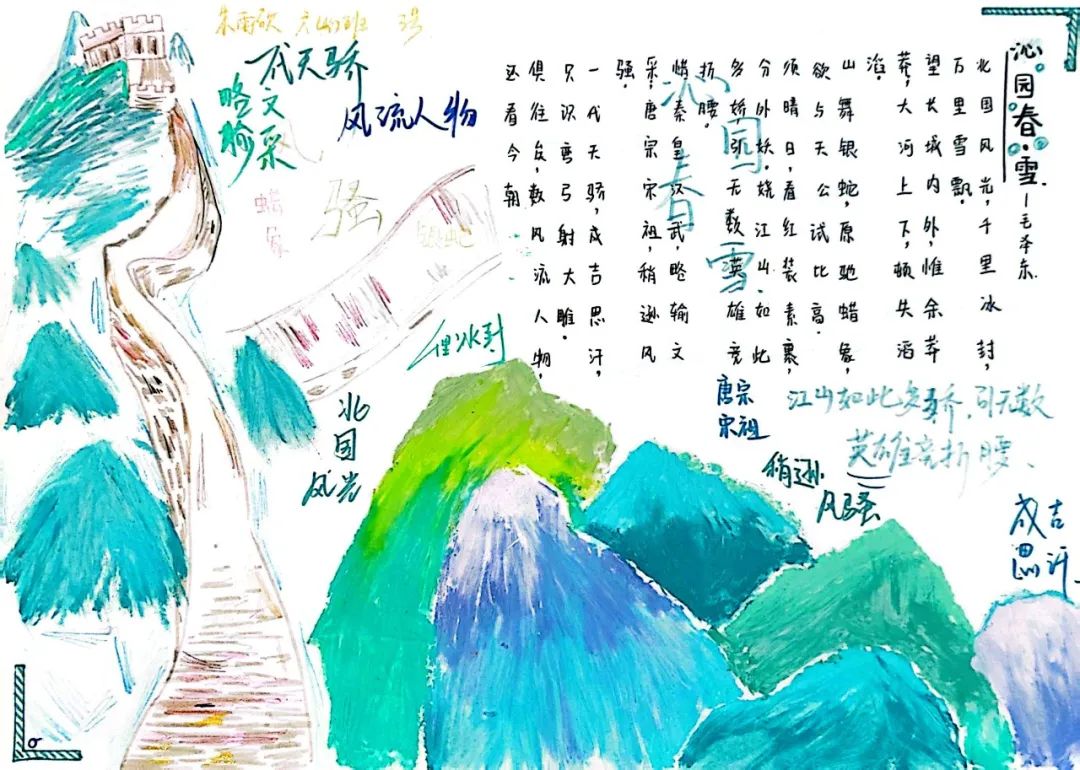 沁园春·雪
—毛泽东
北国风光,千里冰封,
万里雪飘。
望长城内外,惟余莽
莽,大河上下,顿失滔
滔。
山舞银蛇,原驰蜡象,
欲与天公试比高。
须晴日,看红装素裹,
分外妖娆江山如此
多娇,引无数英雄竞
折腰。
惜秦皇汉武,略输文
采,唐宗宋祖,稍逊风
骚。
一代天骄,成吉思汗,
只识弯弓射大雕。
俱往矣,数风流人物,
还看今朝
沁园春雪
一代天骄
略输
文采
风流人物
骚
蜡象
银蛇
千里冰封
北国
风光
唐宗
宋祖
江山如此多娇,引无数
英雄竞折腰、
稍逊
风骚
成吉
思汗